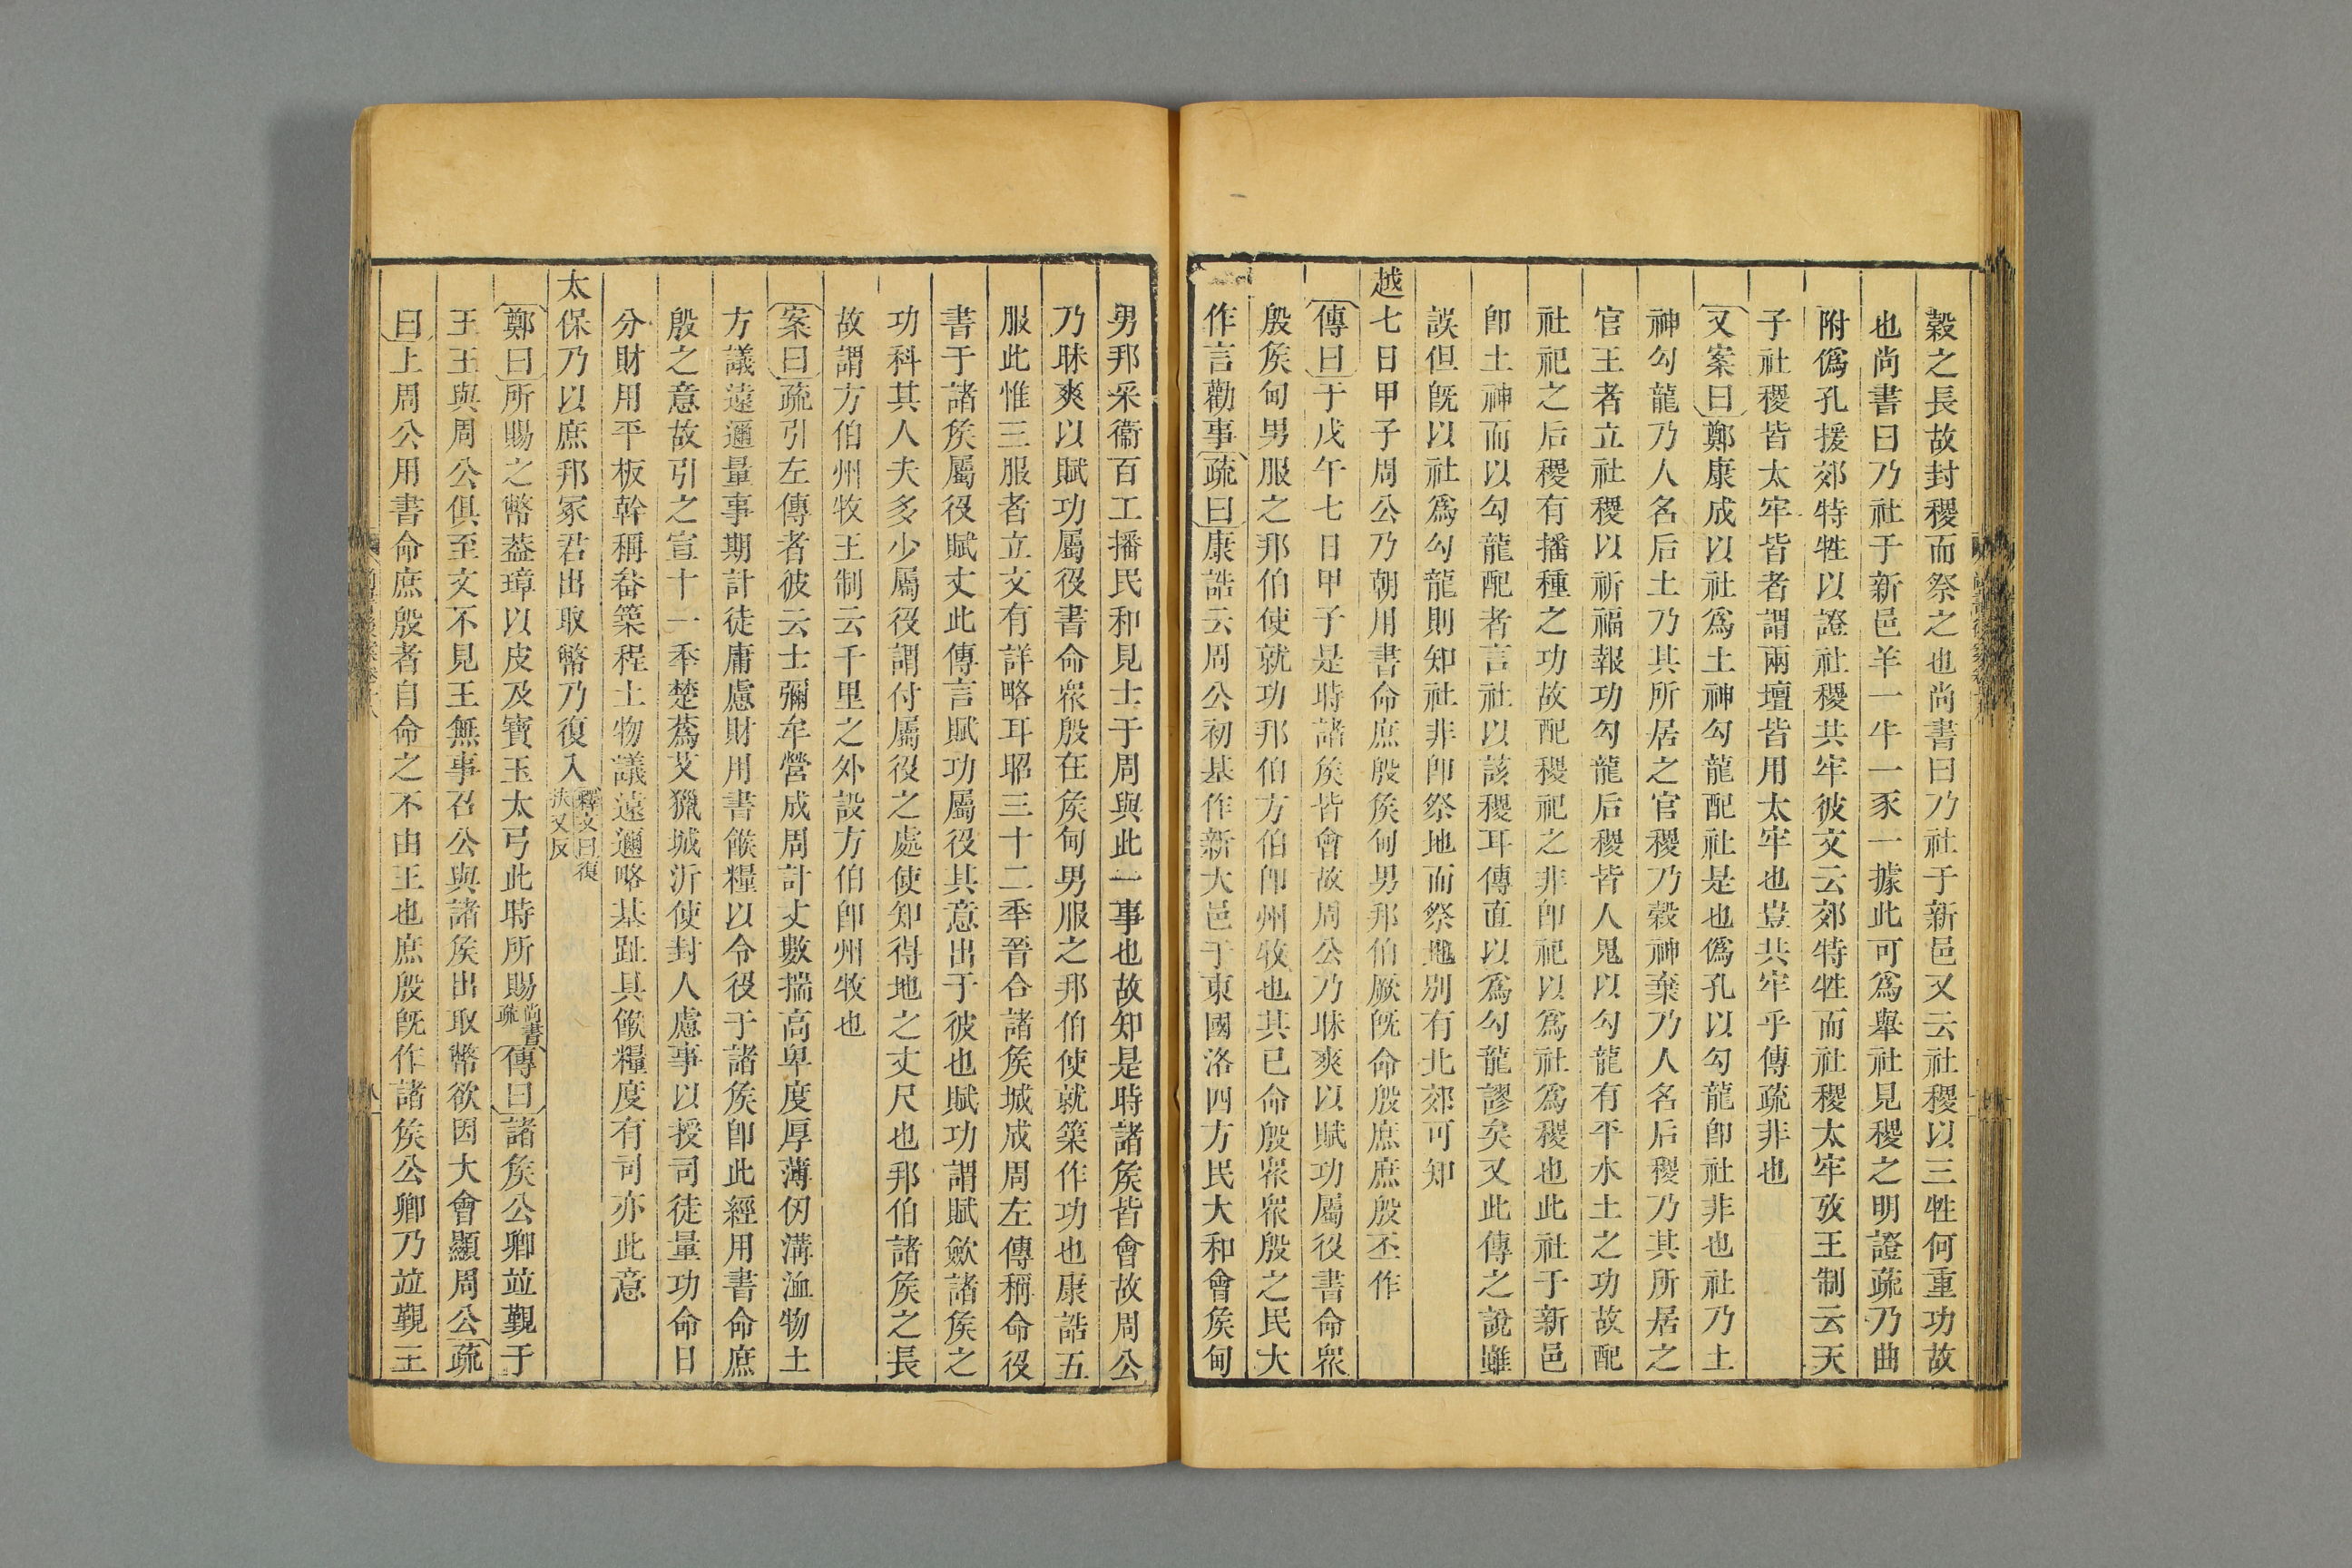 穀之長故封稷而祭之也尚書曰乃社于新邑又云社稷以三牲何重功故
也尚書曰乃社于新邑羊一牛一豕一據此可爲舉社見稷之明證疏乃曲
附僞孔援郊特牲以證社稷共牢彼文云郊特牲而社稷太牢攷王制云天
子社稷皆太牢皆者謂兩壇皆用太牢也豈共牢乎傳疏非也
又案曰鄭康成以社爲土神勾龍配社是也僞孔以勾龍卽社非也社乃土
神勾龍乃人名后土乃其所居之官稷乃穀神棄乃人名后稷乃其所居之
官王者立社稷以祈福報功勾龍后稷皆人鬼以勾龍有平水土之功故配
社祀之后稷有播種之功故配稷祀之非卽祀以爲社爲稷也此社于新邑
卽土神而以勾龍配者言社以該稷耳傳直以爲勾龍謬矣又此傳之說雖
誤但旣以社爲勾龍則知社非卽祭地而祭地別有北郊可知
越七日甲子周公乃朝用書命庶殷矦甸男邦伯厥旣命殷庶庶殷丕作
傳曰于戊午七日甲子是時諸矦皆會故周公乃昧爽以賦功屬役書命衆
殷矦甸男服之邦伯使就功邦伯方伯卽州牧也其已命殷衆衆殷之民大
作言勸事疏曰康誥云周公初基作新大邑于東國洛四方民大和會矦甸
男邦采衞百工播民和見士于周與此一事也故知是時諸矦皆會故周公
乃昧爽以賦功屬役書命衆殷在矦甸男服之邦伯使就築作功也康誥五
服此惟三服者立文有詳略耳昭三十二年晉合諸矦城成周左傳稱命役
書于諸矦屬役賦丈此傳言賦功屬役其意出于彼也賦功謂賦斂諸矦之
功科其人夫多少屬役謂付屬役之處使知得地之丈尺也邦伯諸矦之長
故謂方伯州牧王制云千里之外設方伯卽州牧也
案曰疏引左傳者彼云士彌牟營成周計丈數揣高卑度厚薄仞溝洫物土
方議遠邇量事期計徒庸慮財用書餱糧以令役于諸矦卽此經用書命庶
殷之意故引之宣十一年楚蔿艾獵城沂使封人慮事以授司徒量功命日
分財用平板榦稱畚築程土物議遠邇略基趾具餱糧度有司亦此意
太保乃以庶邦冢君出取幣乃復入釋文曰復扶又反
鄭曰所賜之幣葢璋以皮及寶玉太弓此時所賜尚書疏傳曰諸矦公卿竝覲于
王王與周公俱至文不見王無事召公與諸矦出取幣欲因大會顯周公疏
曰上周公用書命庶殷者自命之不由王也庶殷旣作諸矦公卿乃竝覲王